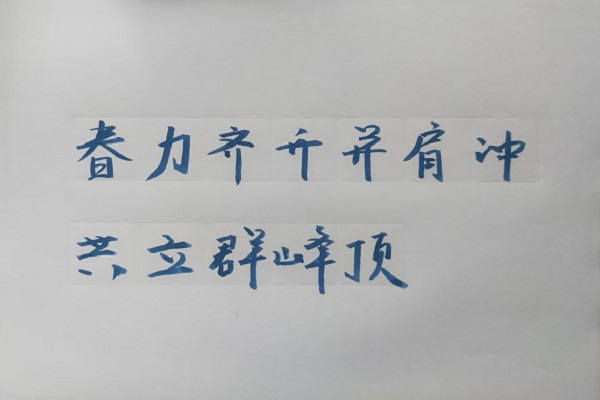 春力齐升并肩冲
共立群峰顶